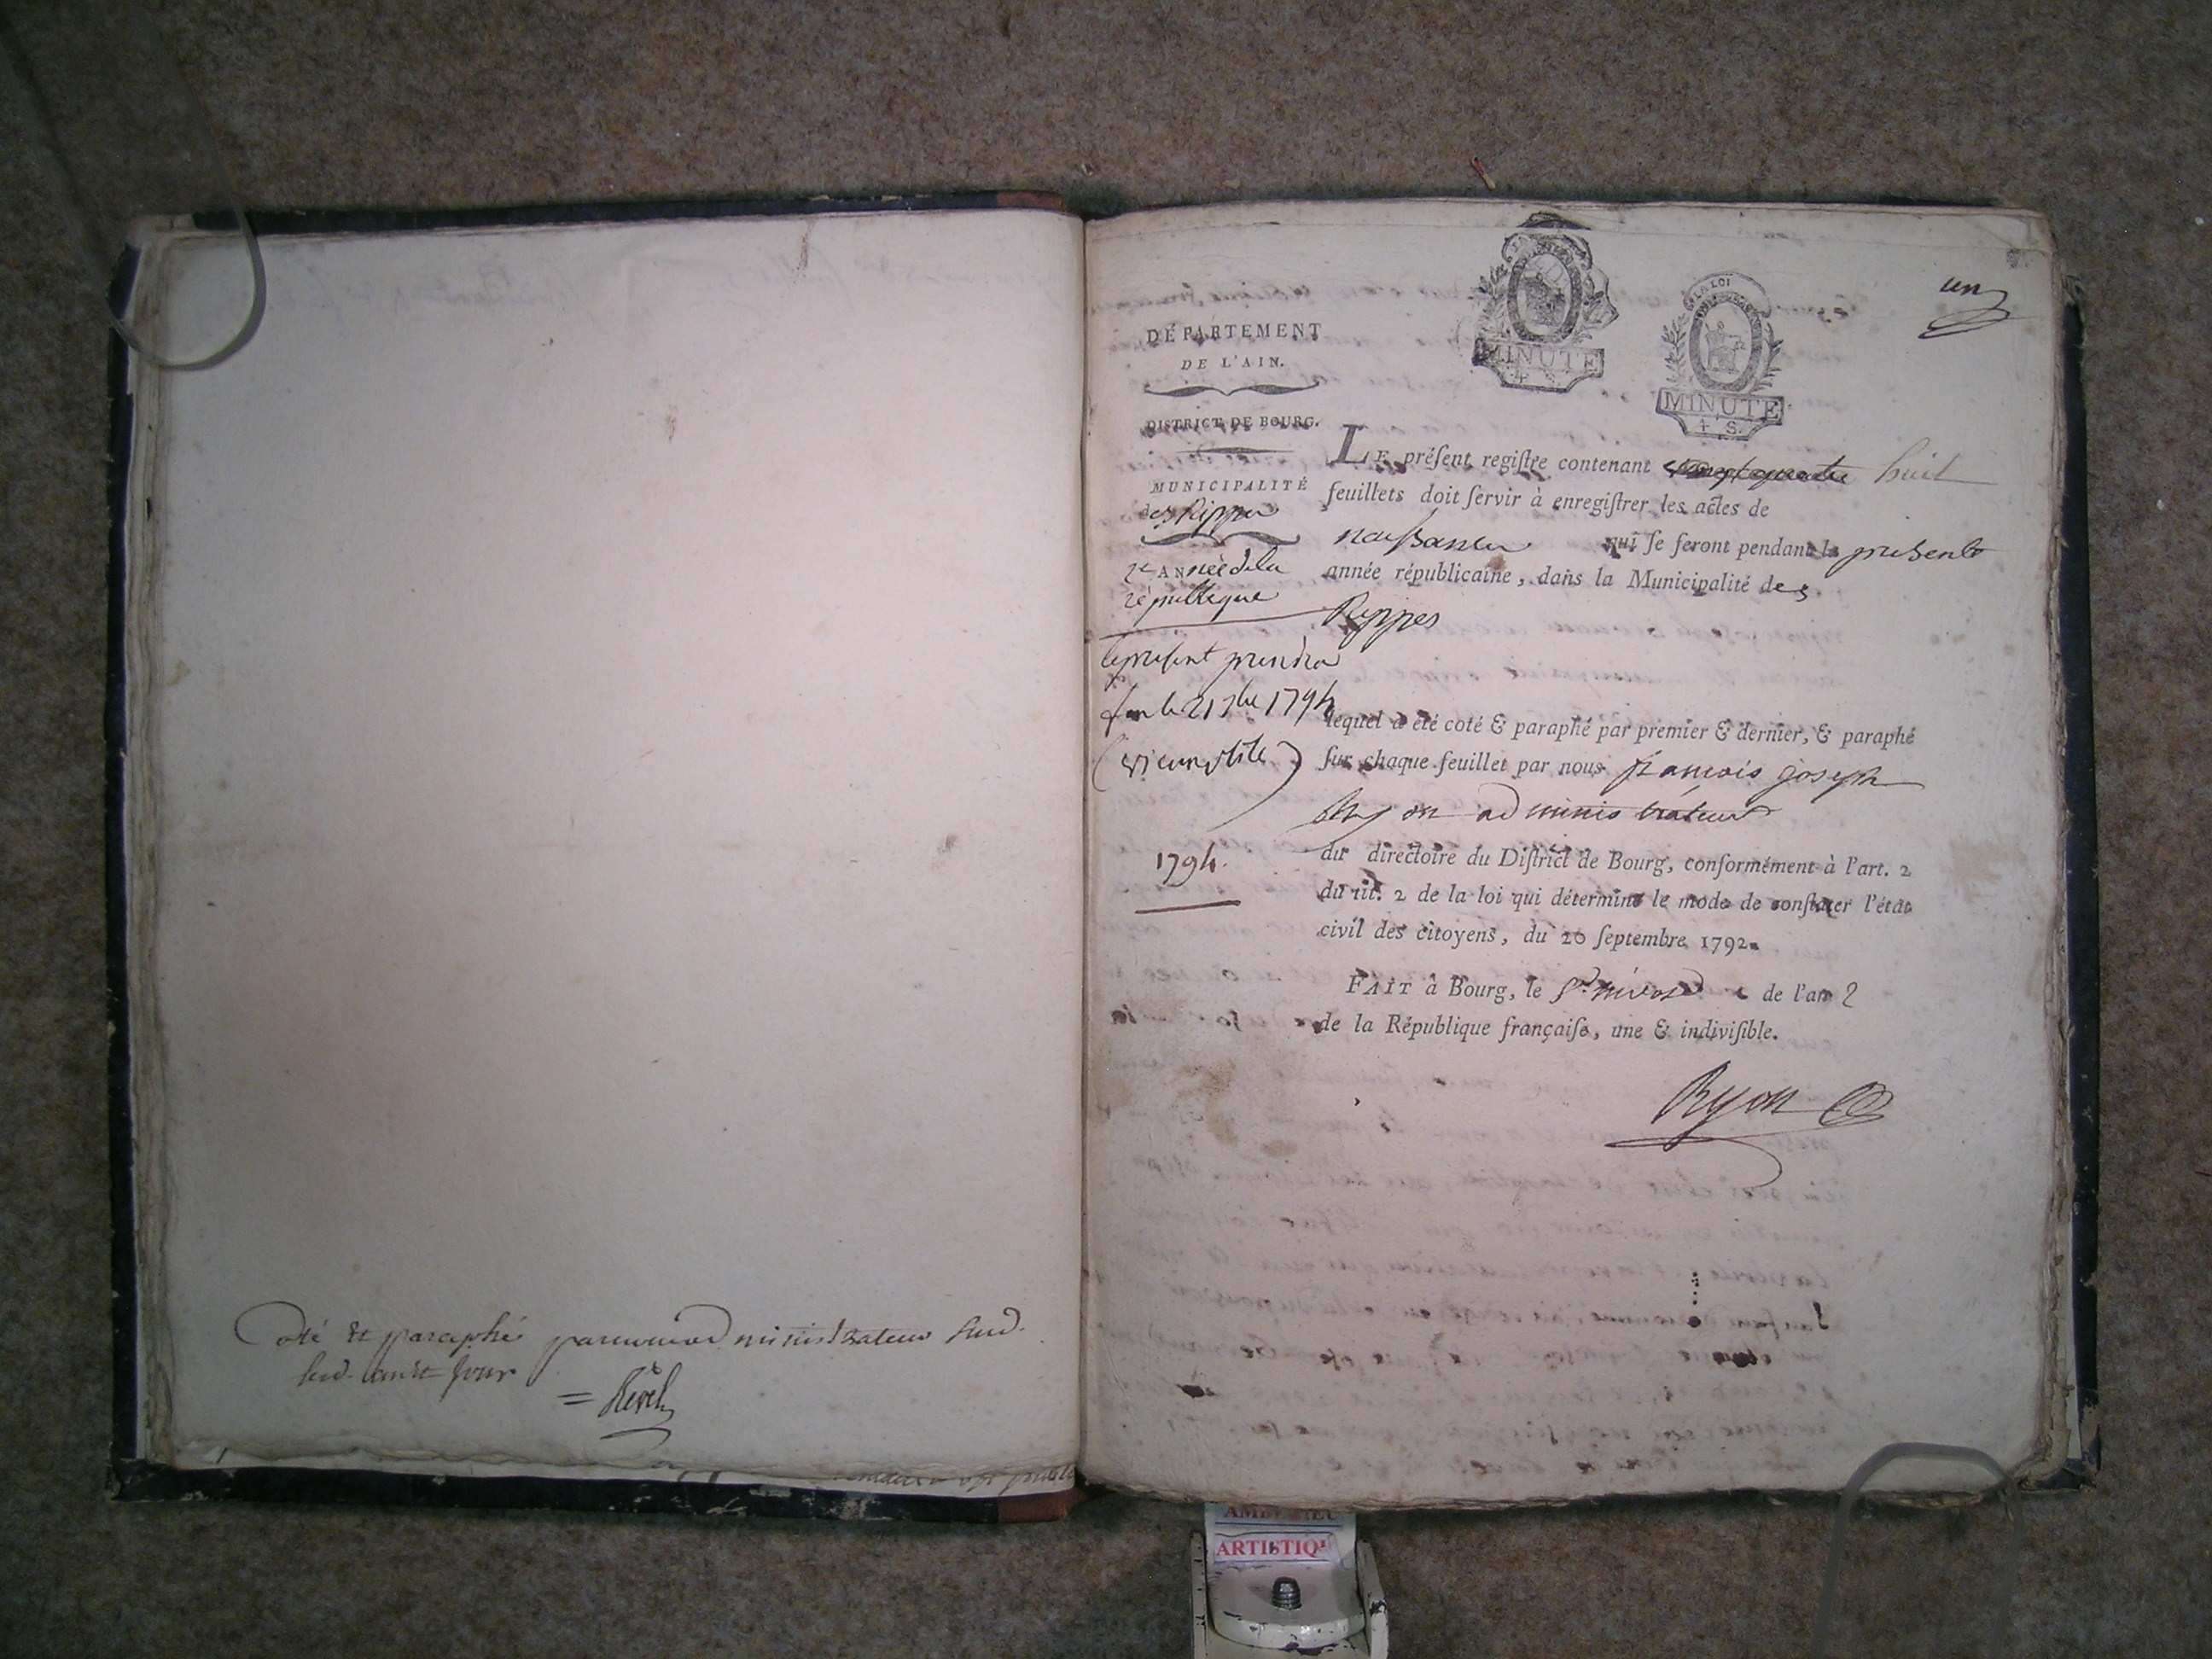 Coté et paraphé par nous administrateur sud.
sud. an et jour
= Revel
un
LA LOI
MINUTE
4 S.
MINUTE
4 S.
DÉPARTEMENT
DE L'AIN.
DISTRICT DE BOURG.
MUNICIPALITÉ
des Rippes
2e ANnée de la
république
le present prendra
fin le 21 7bre 1794
(vieux stile)
1794.
LE préſent regiſtre contenant huit
feuillets doit ſervir à enregiſtrer les actes de
naissances qui ſe feront pendant la presente
année républicaine, dans la Municipalité des
Rippes
lequel a été coté & paraphé par premier & dernier, & paraphé
ſur chaque feuillet par nous françois joseph
Ryon administrateur
du directoire du Diſtrict de Bourg, conformément à l'art. 2
du tit. 2 de la loi qui détermine le mode de conſtater l'état
civil des citoyens, du 20 ſeptembre 1792.
FAIT à Bourg, le nivose de l'an 2
de la République françaiſe, une & indiviſible.
Ryon
ARTISTIQ